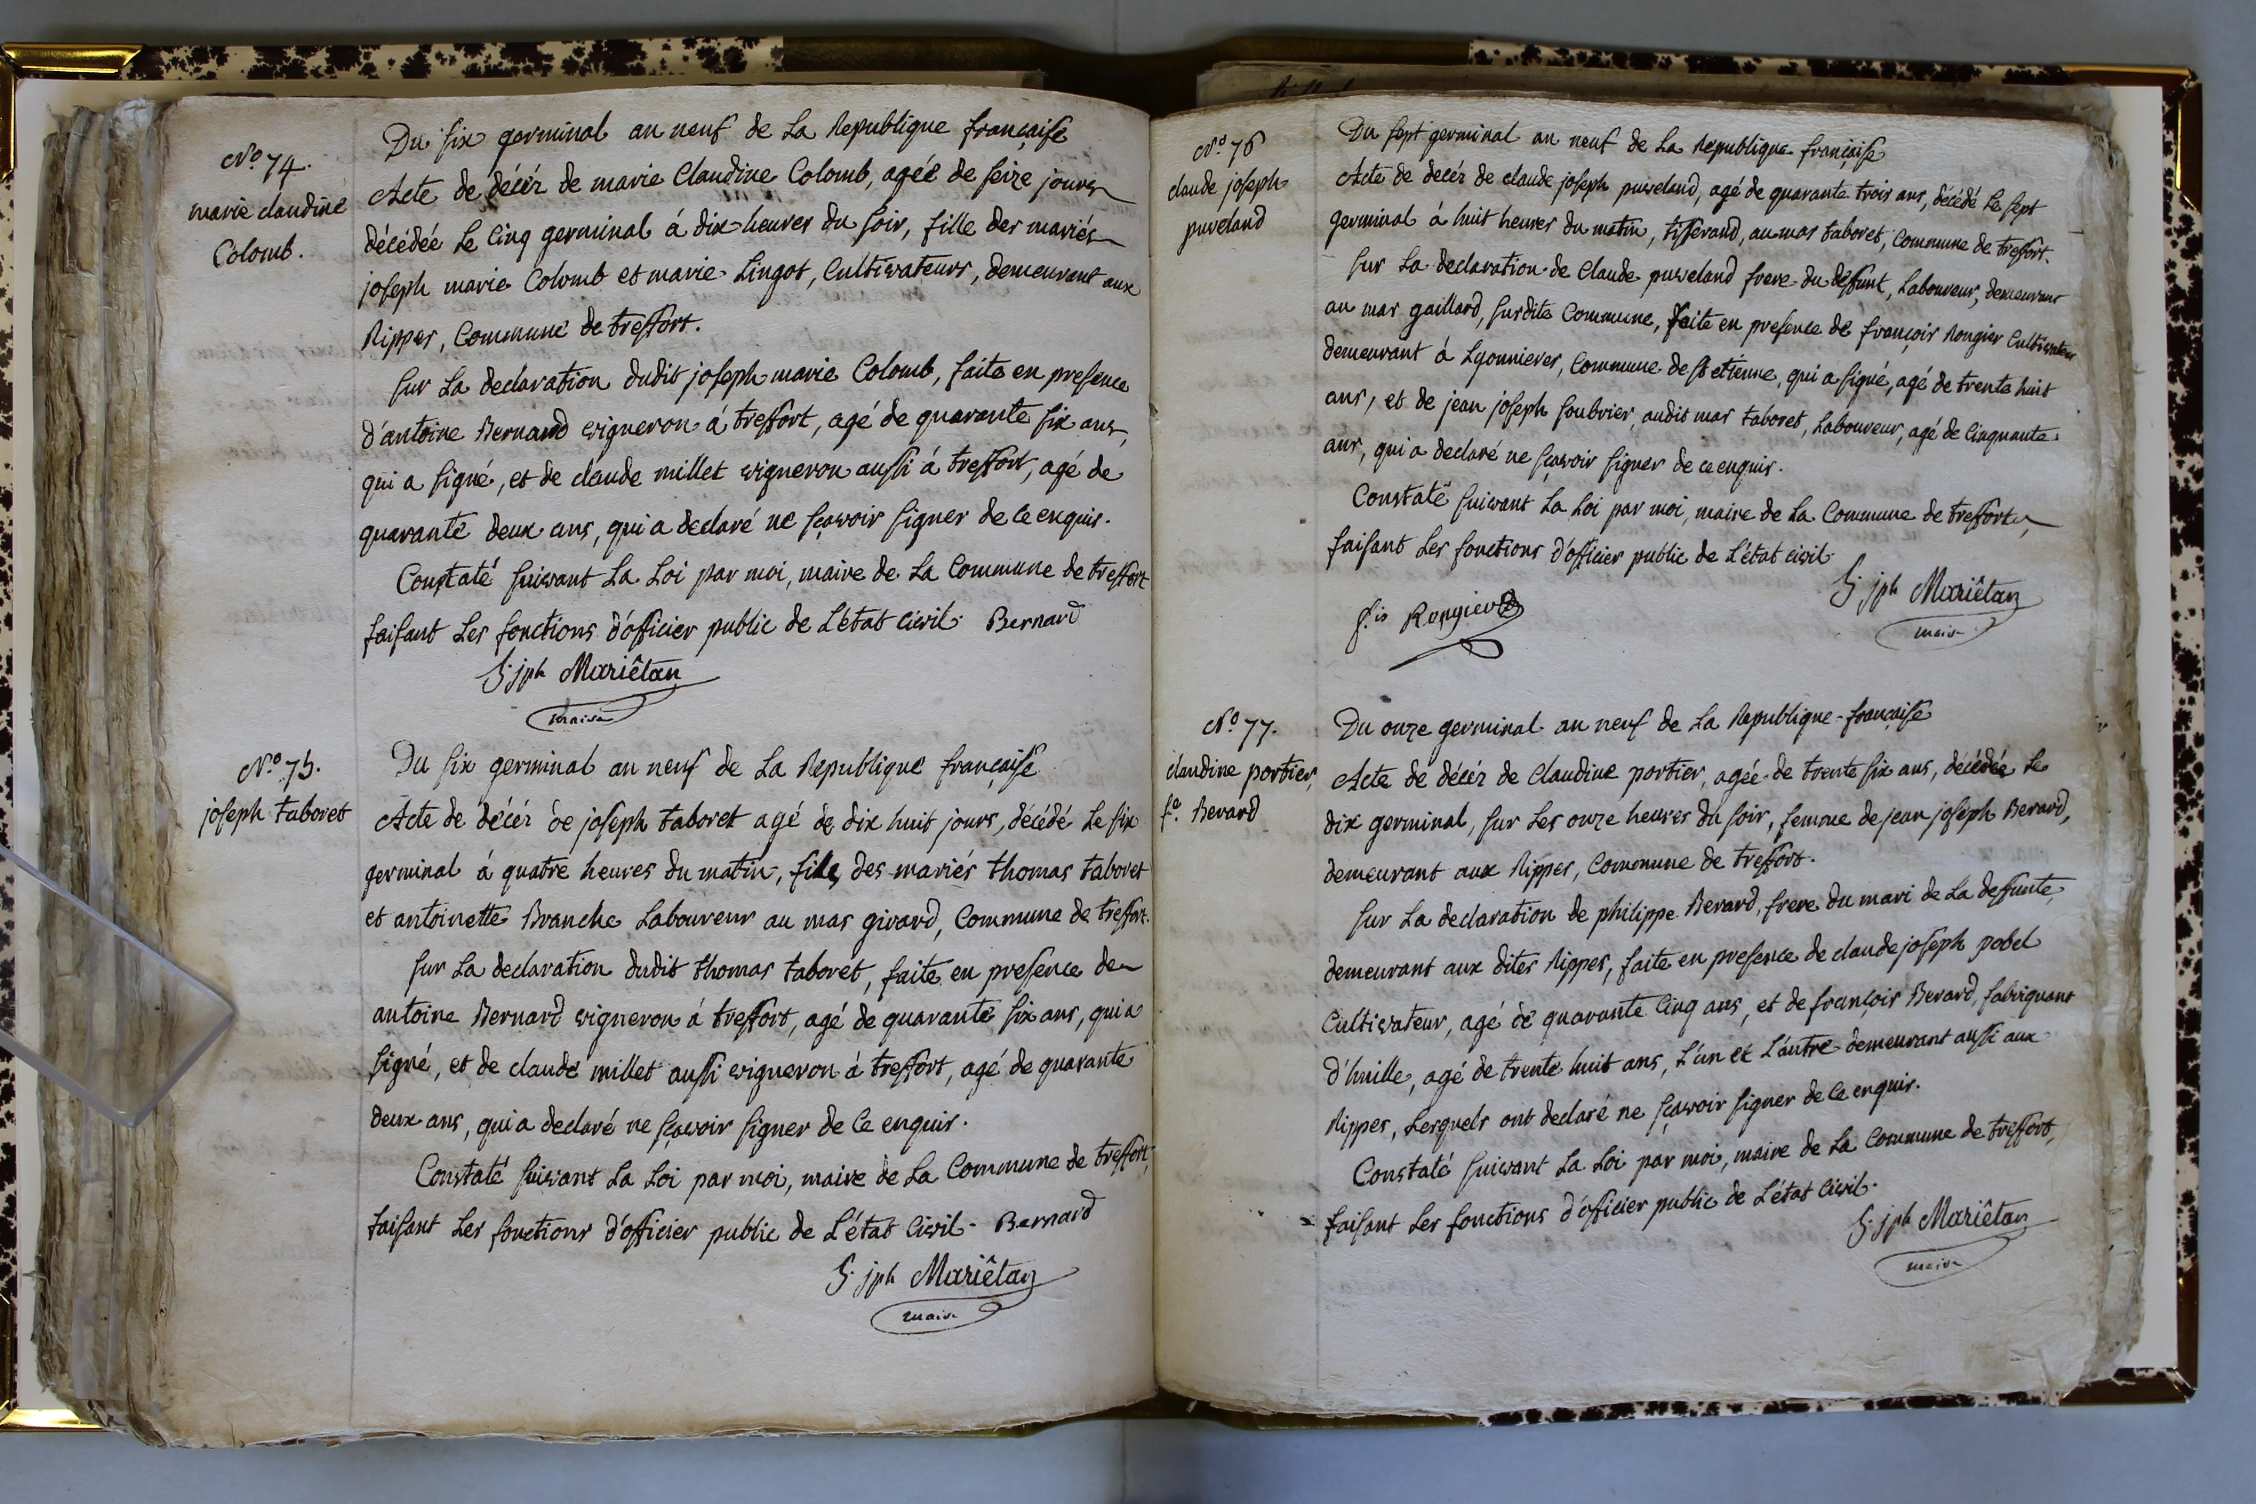 N.º 74.
marie claudine
Colomb.
Du six germinal an neuf de la Republique française
Acte de décéz de marie Claudine Colomb, agée de seize jours
décédée le cinq germinal à dix heures du soir, fille des mariés
joseph marie Colomb et marie Lingot, Cultivateurs, demeurant aux
Rippes, Commune de treffort.
sur la declaration dudit joseph marie Colomb, faite en presence
d'antoine Bernard vigneron à treffort, agé de quarante six ans,
qui a signé, et de claude millet vigneron aussi à treffort, agé de
quarante deux ans, qui a declaré ne sçavoir signer de ce enquis.
Constaté suivant la loi par moi, maire de la Commune de treffort
faisant les fonctions d'officier public de l'état civil. Bernard
jph Mariêtan
maire
N.º 75.
joseph taboret
Du six germinal an neuf de la Republique française
Acte de décéz de joseph taboret agé de dix huit jours, décédé le six
germinal à quatre heures du matin, fils des mariés thomas taboret
et antoinette Branche laboureur au mas girard, Commune de treffort.
sur la declaration dudit thomas taboret, faite en presence de
antoine Bernard vigneron à treffort, agé de quarante six ans, qui a
signé, et de claude millet aussi vigneron à treffort, agé de quarante
deux ans, qui a declaré ne sçavoir signer de ce enquis.
Constaté suivant la loi par moi, maire de la Commune de treffort,
faisant les fonctions d'officier public de l'état civil. Bernard
jph Mariêtan
maire
N.º 76
claude joseph
puveland
Du sept germinal an neuf de la Republique française
Acte de decéz de claude joseph puveland, agé de quarante trois ans, décédé le sept
germinal à huit heures du matin, tisserand, au mas taboret, Commune de treffort.
sur la declaration de Claude puveland frere du deffunt, laboureur, demeurant
au mas gaillard, susdite Commune, faite en presence de françois Rongier Cultivateur
demeurant à Lyonnieres, Commune de St etienne, qui a signé, agé de trente huit
ans, et de jean joseph soubrier, audit mas taboret, laboureur, agé de cinquante
ans, qui a declaré ne sçavoir signer de ce enquis.
Constaté suivant la loi par moi, maire de la Commune de treffort,
faisant les fonctions d'officier public de l'état civil
jph Mariêtan
maire
f.is Rongier
N.º 77.
claudine portier,
f.e Berard
Du onze germinal an neuf de la Republique française
Acte de décéz de Claudine portier, agée de trente six ans, décédée le
dix germinal, sur les onze heures du soir, femme de jean joseph Berard,
demeurant aux Rippes, Commune de treffort.
sur la declaration de philippe Berard, frere du mari de la deffunte,
demeurant aux dites Rippes, faite en presence de claude joseph pobel
Cultivateur, agé de quarante cinq ans, et de françois Berard, fabriquant
d'huille, agé de trente huit ans, l'un et l'autre demeurant aussi aux
Rippes, lesquels ont declaré ne sçavoir signer de ce enquis.
Constaté suivant la loi par moi, maire de la Commune de treffort,
faisant les fonctions d'officier public de l'état civil.
jph Mariêtan
maire